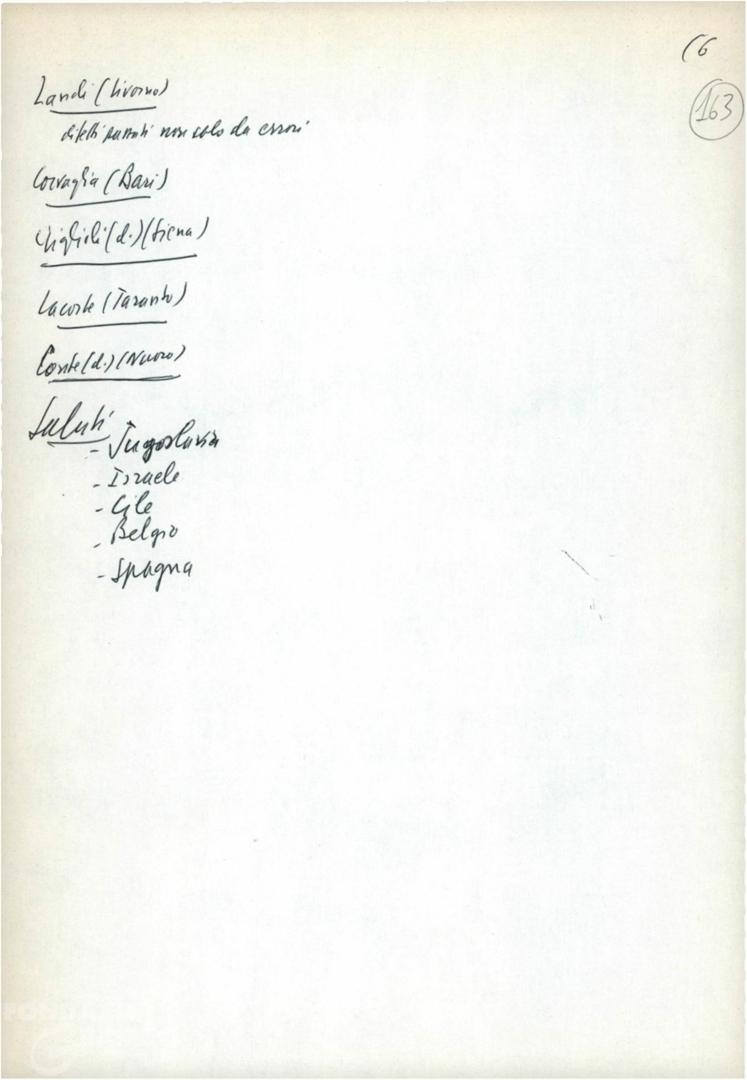 (6
163
Landi (Livorno)
difetti passati non solo da errori
Corvaglia (Bari)
Giglioli (d.) (Siena)
Lacorte (Taranto)
Conte (d.) (Nuoro)
Saluti
- Jugoslavia
- Israele
- Cile
- Belgio
- Spagna